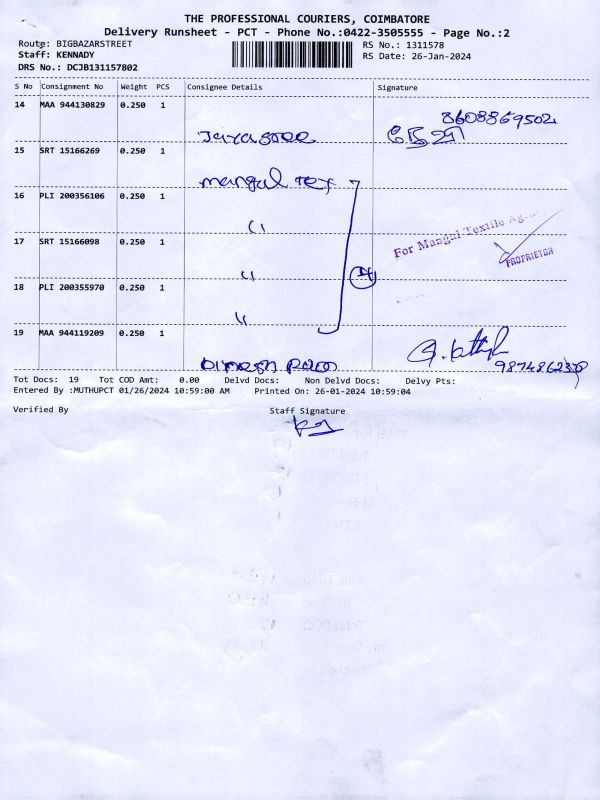 THE PROFESSIONAL COURIERS, COIMBATORE
Delivery Runsheet - PCT - Phone No.:0422-3505555 - Page No.:2
Route: BIGBAZARSTREET
RS No.: 1311578
Staff: KENNADY
RS Date: 26-Jan-2024
DRS No.: DCJB131157802
S No Consignment No Weight PCS Consignee Details Signature
14 MAA 944130829 0.250 1
8608869502
Jayasree
15 SRT 15166269 0.250 1
mangal tex
16 PLI 200356106 0.250 1
"
For Mangal Textile
17 SRT 15166098 0.250 1
PROPRIETOR
"
4
18 PLI 200355970 0.250 1
"
19 MAA 944119209 0.250 1
Dinesh Ram
Tot Docs: 19 Tot COD Amt: 0.00 Delvd Docs: Non Delvd Docs: Delvy Pts:
Entered By :MUTHUPCT 01/26/2024 10:59:00 AM Printed On: 26-01-2024 10:59:04
Verified By Staff Signature